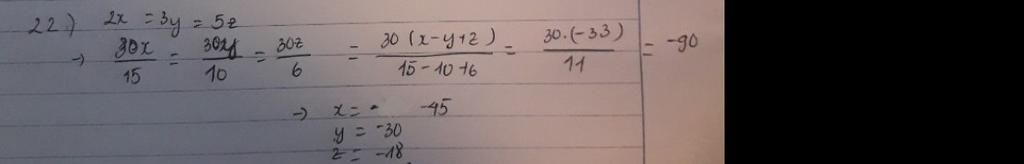 22.) 2x = 3y = 5z
→ 30x/15 = 30y/10 = 30z/6 = 30(x-y+z)/15-10+6 = 30.(-33)/11 = -90
→ x = -45
y = -30
z = -18